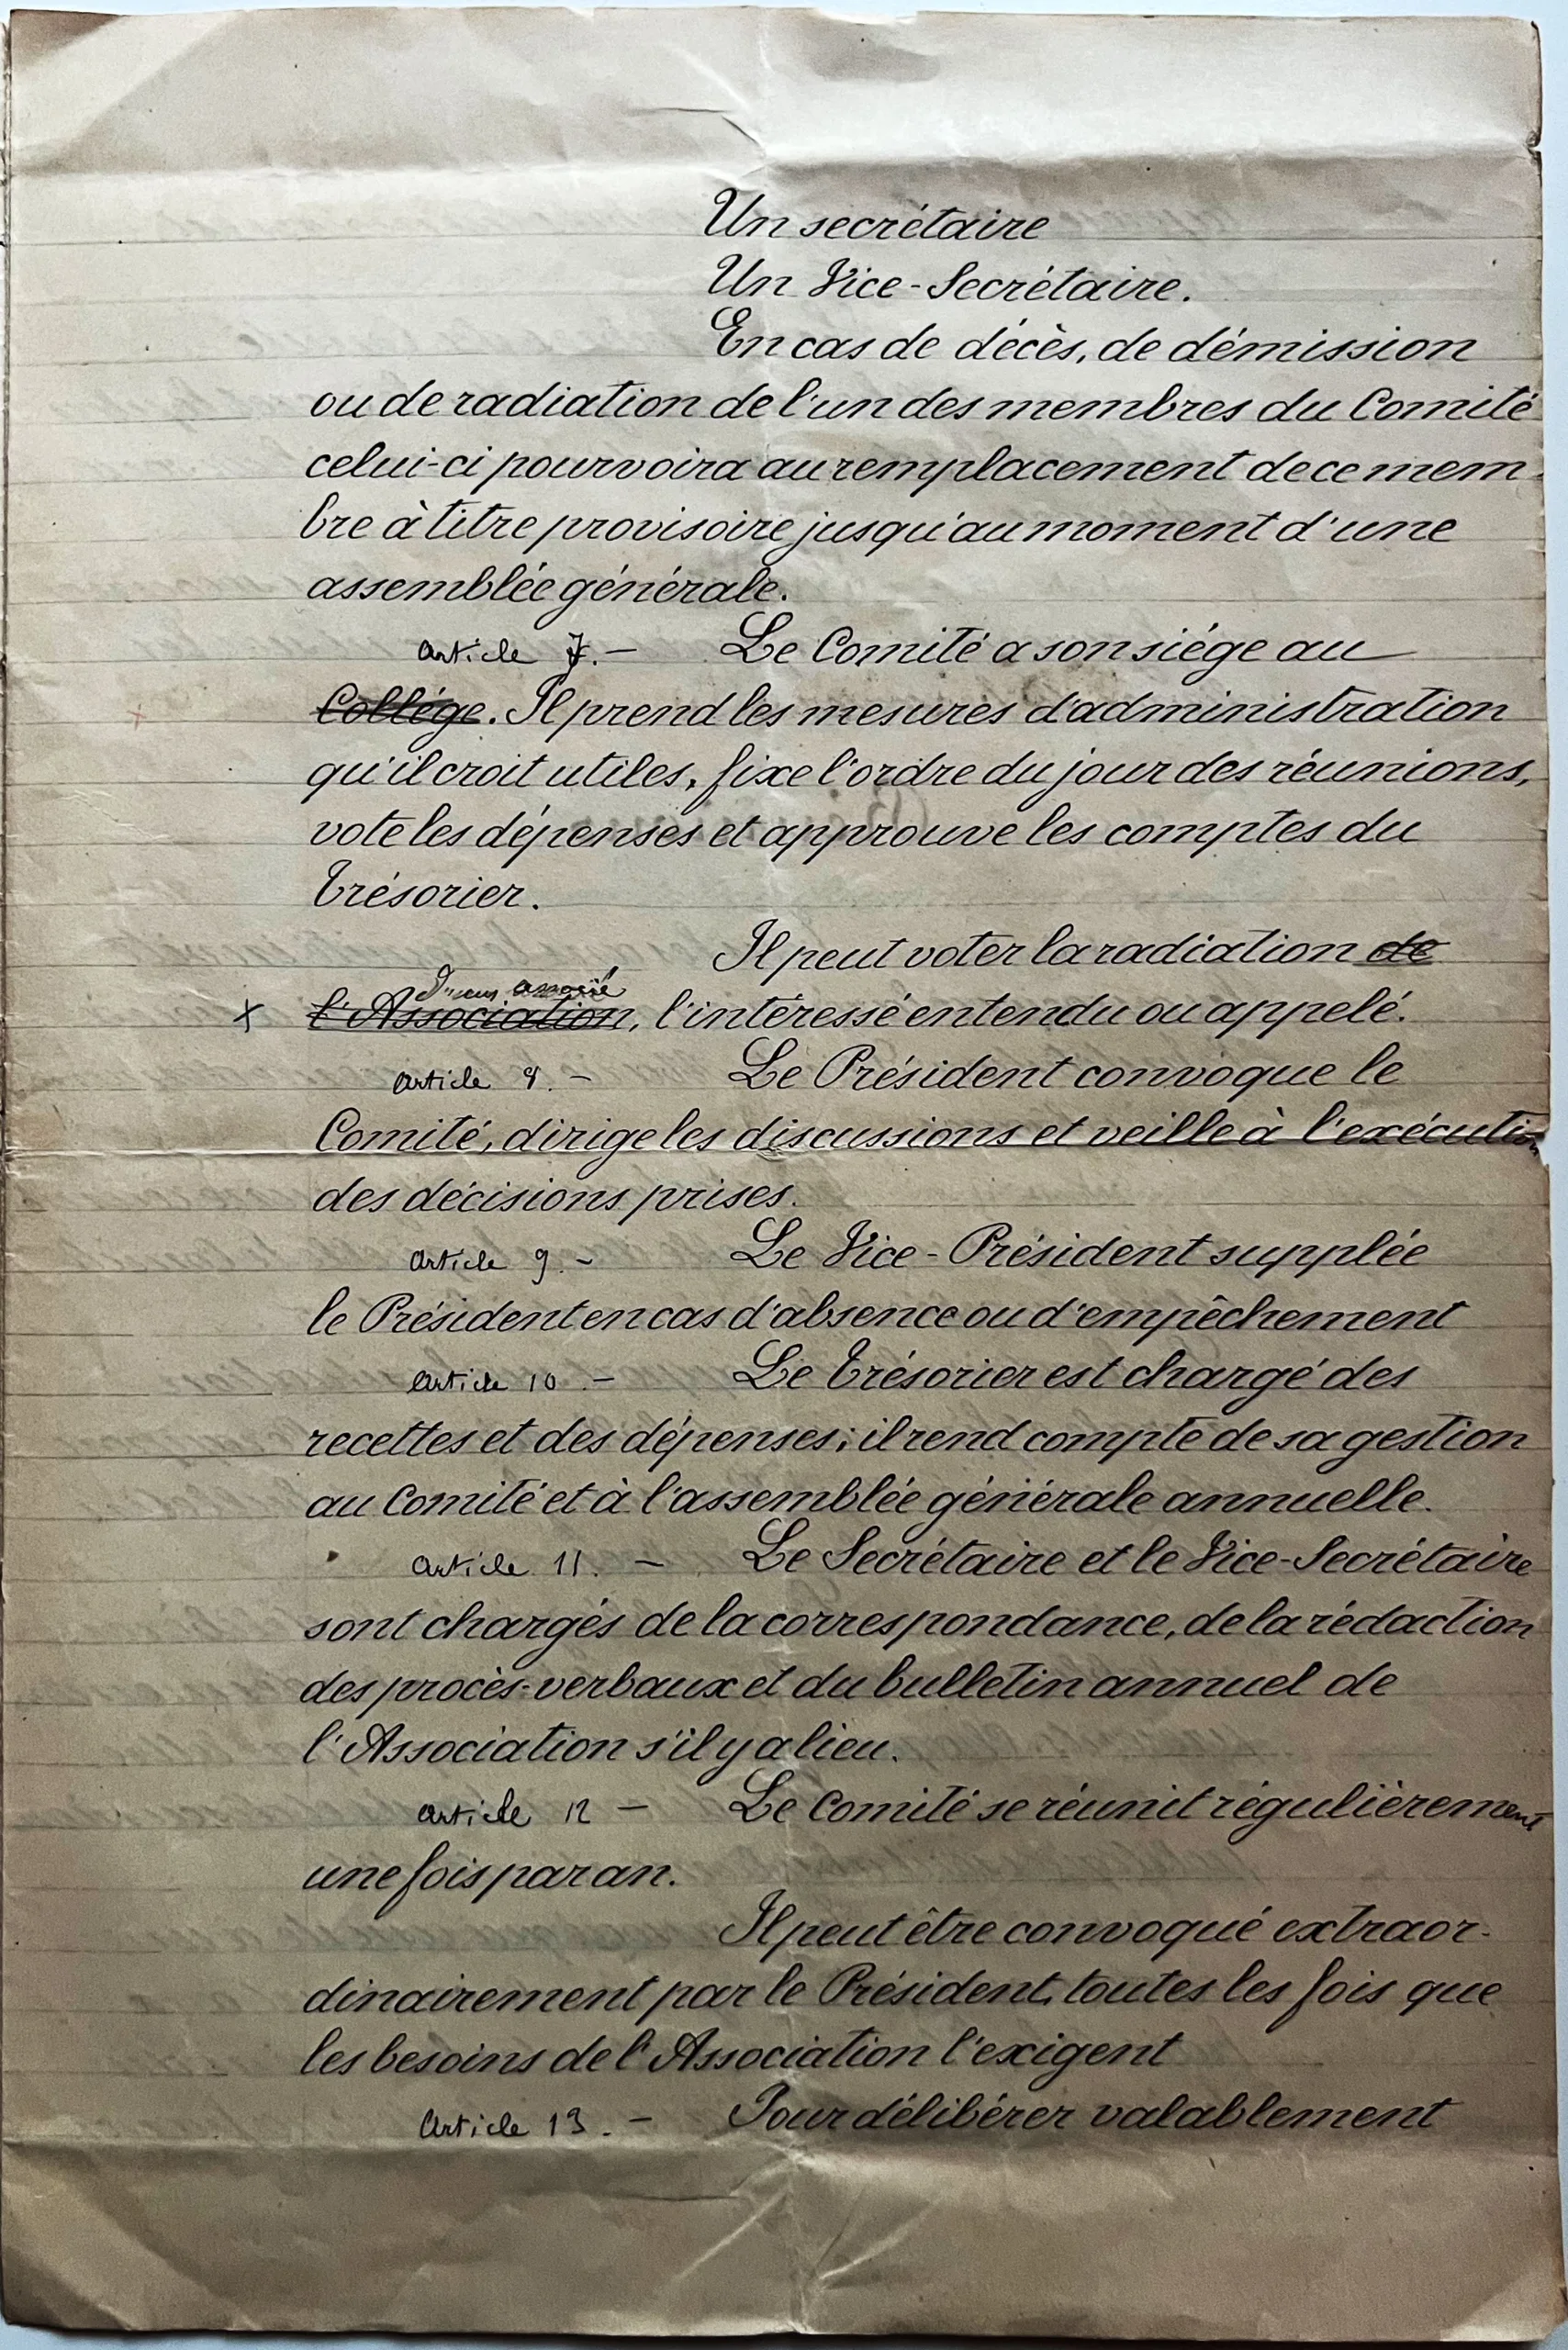 Un secrétaire
Un Vice-Secrétaire.
En cas de décès, de démission
ou de radiation de l'un des membres du Comité
celui-ci pourvoira au remplacement de ce mem-
bre à titre provisoire jusqu'au moment d'une
assemblée générale.
article 7. - Le Comité a son siége au
Collége. Il prend les mesures d'administration
qu'il croit utiles, fixe l'ordre du jour des réunions,
vote les dépenses et approuve les comptes du
Trésorier.
Il peut voter la radiation de
d'un associé
x l'Association, l'intéressé entendu ou appelé.
article 8. - Le Président convoque le
Comité, dirige les discussions et veille à l'exécution
des décisions prises.
article 9. - Le Vice-Président supplée
le Président en cas d'absence ou d'empêchement
article 10. - Le Trésorier est chargé des
recettes et des dépenses; il rend compte de sa gestion
au Comité et à l'assemblée générale annuelle.
article 11. - Le Secrétaire et le Vice-Secrétaire
sont chargés de la correspondance, de la rédaction
des procès-verbaux et du bulletin annuel de
l'Association s'il y a lieu.
article 12 - Le Comité se réunit régulièrement
une fois par an.
Il peut être convoqué extraor-
dinairement par le Président, toutes les fois que
les besoins de l'Association l'exigent
article 13. - Pour délibérer valablement